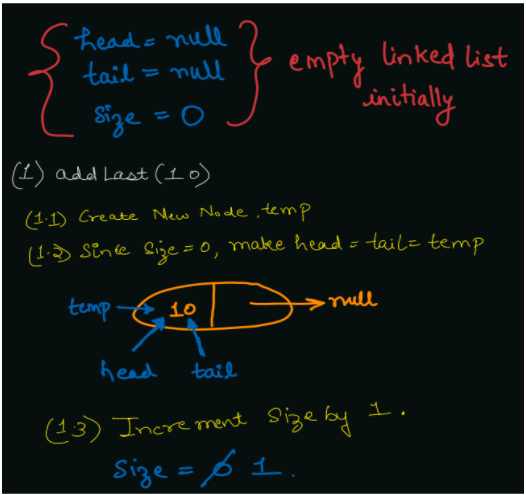 head = null
tail = null
size = 0
empty linked list
initially
(1) addLast(10)
(1.1) Create New Node, temp
(1.2) Since Size = 0, make head = tail = temp
temp 10 null
head tail
(1.3) Increment Size by 1.
Size = 0 1.